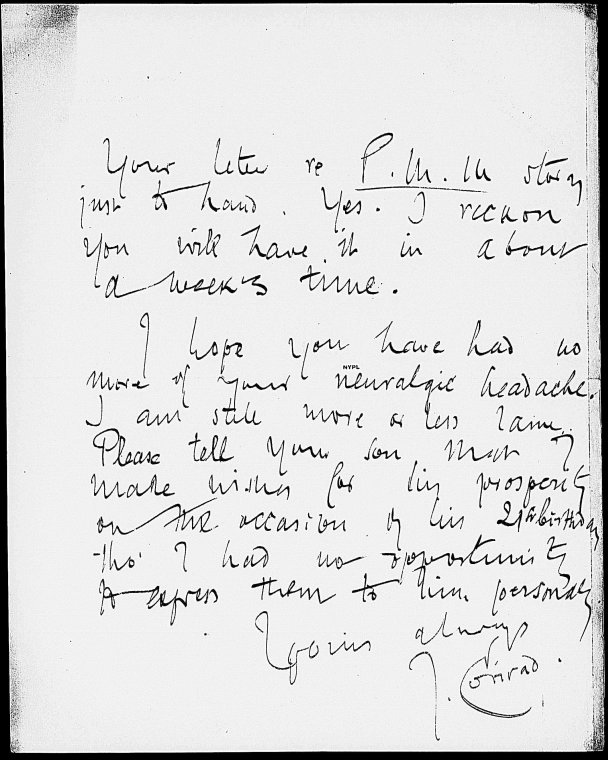 Your letter re P.M.M story
just to hand. Yes. I reckon
you will have it in about
a week's time.
I hope you have had no
more of your neuralgic headache.
NYPL
I am still more or less lame.
Please tell your son that I
make wishes for his prosperity
on the occasion of his 21st birthday
tho' I had no opportunity
to express them to him personally
Yours always
J. Conrad.